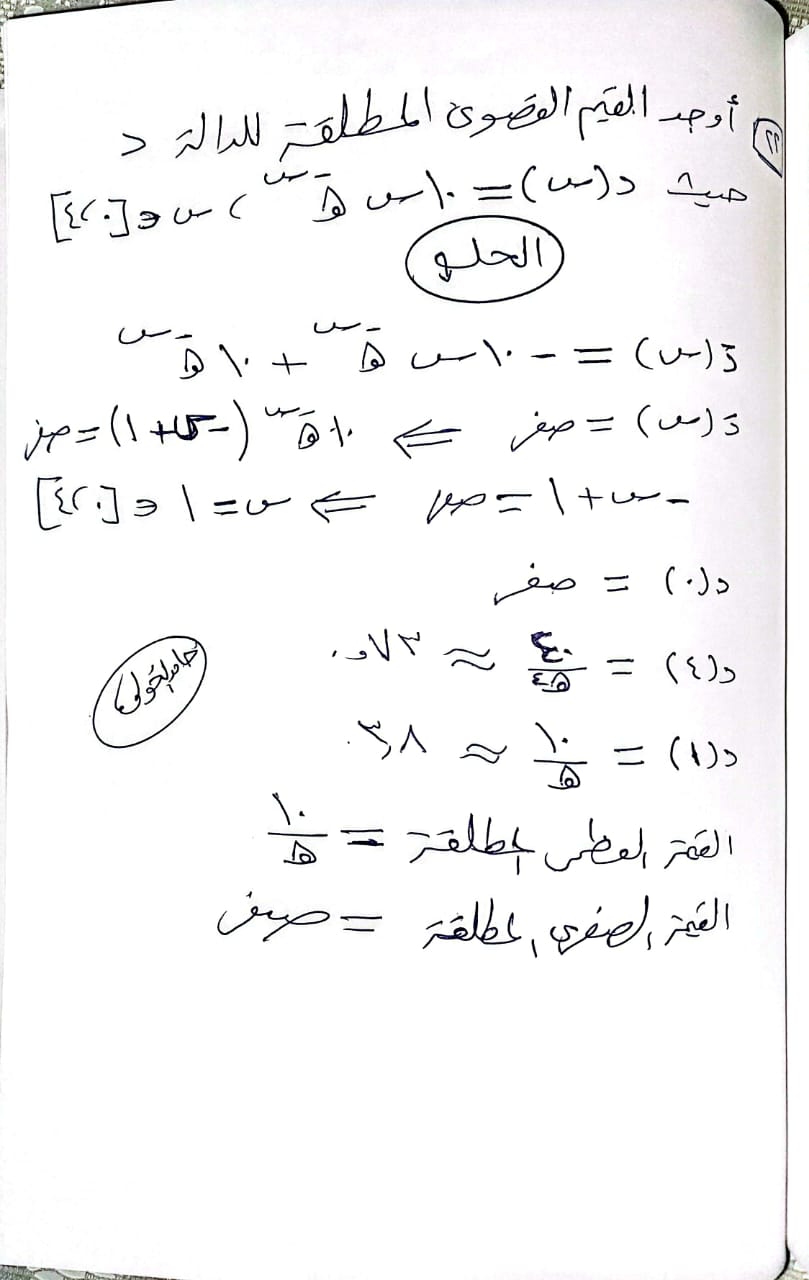 ٢٢ أوجد القيم القصوى المطلقة للدالة د
حيث د(س) = ١٠س هـ^-س ، س ∈ [٤،٠]
الحلو
دَ(س) = -١٠س هـ^-س + ١٠هـ^-س
دَ(س) = صفر ⇐ ١٠هـ^-س (-س+١) = صفر
-س+١ = صفر ⇐ س = ١ ∈ [٤،٠]
د(٠) = صفر
د(٤) = ٤٠/هـ^٤ ≈ ٠,٧٣
د(١) = ١٠/هـ ≈ ٣,٨
القيمة العظمى المطلقة = ١٠/هـ
القيمة الصغرى المطلقة = صفر